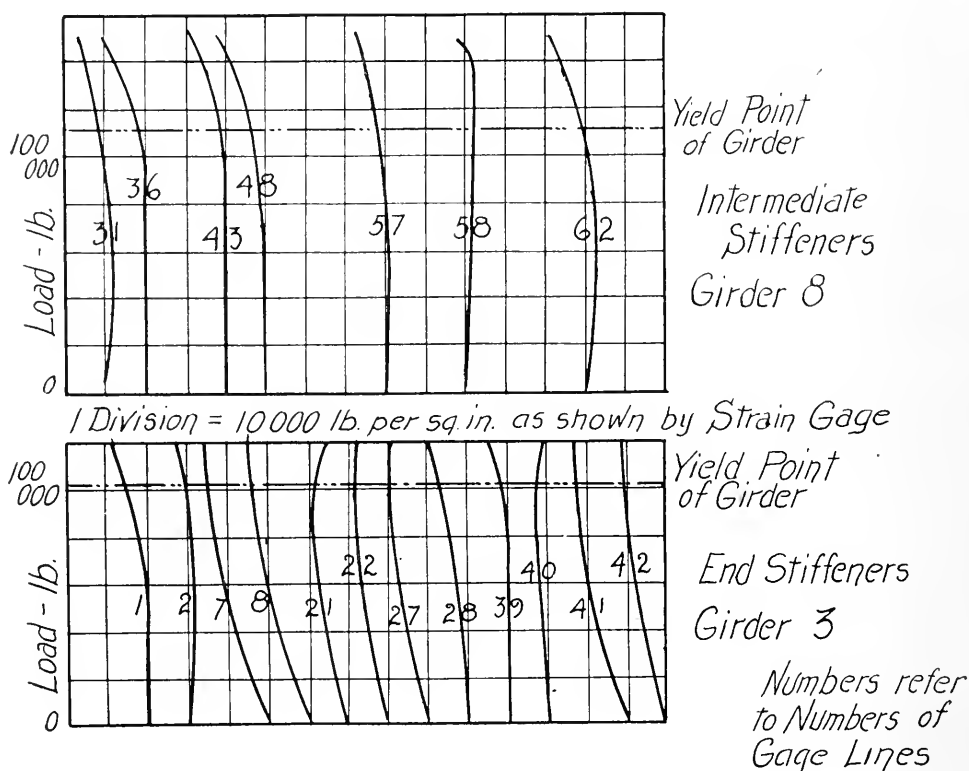 100
000
Load - lb.
0
31
36
43
48
57
58
62
Yield Point
of Girder
Intermediate
Stiffeners
Girder 8
1 Division = 10000 lb. per sq. in. as shown by Strain Gage
100
000
Load - lb.
0
1
2
7
8
21
22
27
28
39
40
41
42
Yield Point
of Girder
End Stiffeners
Girder 3
Numbers refer
to Numbers of
Gage Lines